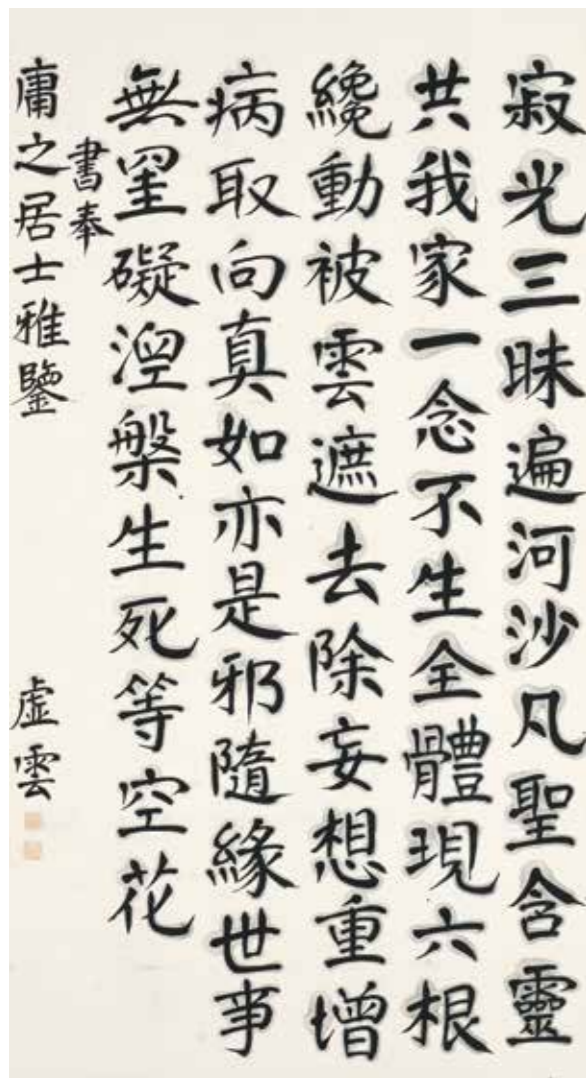 寂光三昧遍河沙凡聖含靈
共我家一念不生全體現六根
纔動被雲遮去除妄想重增
病取向真如亦是邪隨緣世事
無罣礙涅槃生死等空花
書奉
庸之居士雅鑒
虛雲